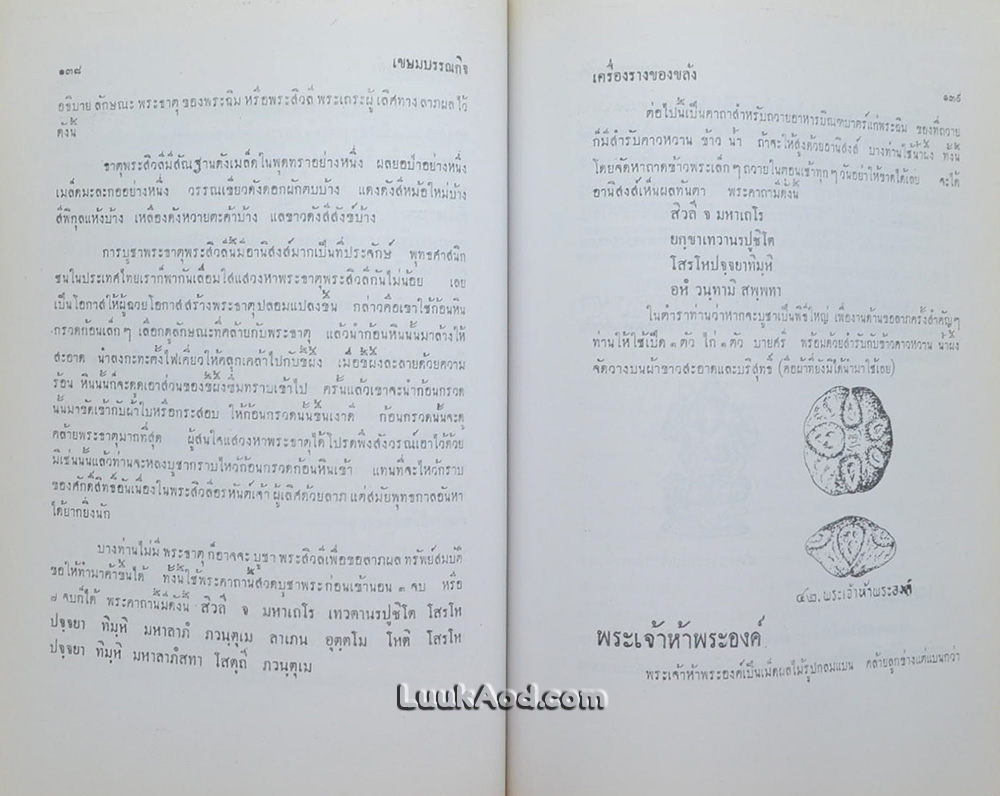 ๑๓๘
เขษมบรรณกิจ
อธิบาย ลักษณะ พระธาตุ ของพระฉิม หรือพระสิวลี พระเถระผู้ เลิศทาง ลาภผล ไว้
ดังนี้
ธาตุพระสิวลีมีสัณฐานดังเมล็ดในพุดทราอย่างหนึ่ง ผลยอป่าอย่างหนึ่ง
เมล็ดมะละกออย่างหนึ่ง วรรณเขียวดังดอกผักตบบ้าง แดงดังสีหม้อใหม่บ้าง
สีพิกุลแห้งบ้าง เหลืองดังหวายตะค้าบ้าง แลขาวดังสีสังข์บ้าง
การบูชาพระธาตุพระสิวลีนี้มีอานิสงส์มากเป็นที่ประจักษ์ พุทธศาสนิก
ชนในประเทศไทยเราก็พากันเลื่อมใสแสวงหาพระธาตุพระสิวลีกันไม่น้อย เลย
เป็นโอกาสให้ผู้ฉวยโอกาสสร้างพระธาตุปลอมแปลงขึ้น กล่าวคือเขาใช้ก้อนหิน
กรวดก้อนเล็กๆ เลือกดูลักษณะที่คล้ายกับพระธาตุ แล้วนำก้อนหินนั้นมาล้างให้
สะอาด นำลงกะทะตั้งไฟเคี่ยวให้คลุกเคล้าไปกับขี้ผึ้ง เมื่อขี้ผึ้งละลายด้วยความ
ร้อน หินนั้นก็จะดูดเอาส่วนของขี้ผึ้งซึมทราบเข้าไป ครั้นแล้วเขาจะนำก้อนกรวด
นั้นมาขัดเข้ากับผ้าใบหรือกระสอบ ให้ก้อนกรวดนั้นขึ้นเงาดี ก้อนกรวดนั้นจะดู
คล้ายพระธาตุมากที่สุด ผู้สนใจแสวงหาพระธาตุได้โปรดพึงสังวรณ์เอาไว้ด้วย
มิเช่นนั้นแล้วท่านจะหลงบูชากราบไหว้ก้อนกรวดก้อนหินเข้า แทนที่จะไหว้กราบ
ของศักดิ์สิทธิ์อันเนื่องในพระสิวลีอรหันต์เจ้า ผู้เลิศด้วยลาภ แต่สมัยพุทธกาลอันหา
ได้ยากยิ่งนัก
บางท่านไม่มี พระธาตุ ก็อาจจะ บูชา พระสิวลีเพื่อขอลาภผล ทรัพย์สมบัติ
ขอให้ทำมาค้าขึ้นได้ ทั้งนี้ใช้พระคาถานี้สวดบูชาพระก่อนเข้านอน ๓ จบ หรือ
๗ จบก็ได้ พระคาถานี้มีดังนี้ สิวลี จ มหาเถโร เทวตานรปูชิโต โสรโห
ปจฺจยา ทิมฺหิ มหาลาภํ ภวนฺตุเม ลาเภน อุตฺตโม โหติ โสรโห
ปจฺจยา ทิมฺหิ มหาลาภํสทา โสตฺถี ภวนฺตุเม
เครื่องรางของขลัง
๑๓๙
ต่อไปนี้เป็นคาถาสำหรับถวายอาหารบิณฑบาตร์แก่พระฉิม ของที่ถวาย
ก็มีสำรับคาวหวาน ข้าว น้ำ ถ้าจะให้สูงด้วยอานิสงส์ บางท่านใช้น้ำผึ้ง ทั้งนี้
โดยจัดหาถาดข้าวพระเล็กๆ ถวายในตอนเช้าทุกๆ วันอย่าให้ขาดได้เลย จะได้
อานิสงส์เห็นผลทันตา พระคาถามีดังนี้
สิวลี จ มหาเถโร
ยกฺขาเทวานรปูชิโต
โสรโหปจฺจยาทิมฺหิ
อหํ วนฺทามิ สพฺพทา
ในตำราท่านว่าหากจะบูชาเป็นพิธีใหญ่ เพื่องานด้านขอลาภครั้งสำคัญๆ
ท่านให้ใช้เป็ด ๑ ตัว ไก่ ๑ ตัว บายศรี พร้อมด้วยสำรับกับข้าวคาวหวาน น้ำผึ้ง
จัดวางบนผ้าขาวสะอาดและบริสุทธิ์ (คือผ้าที่ยังมิได้นำมาใช้เลย)
๔๒. พระเจ้าห้าพระองค์
พระเจ้าห้าพระองค์
พระเจ้าห้าพระองค์เป็นเม็ดผลไม้รูปกลมแบน คล้ายลูกช้างแต่แบนกว่า
LuukAod.com